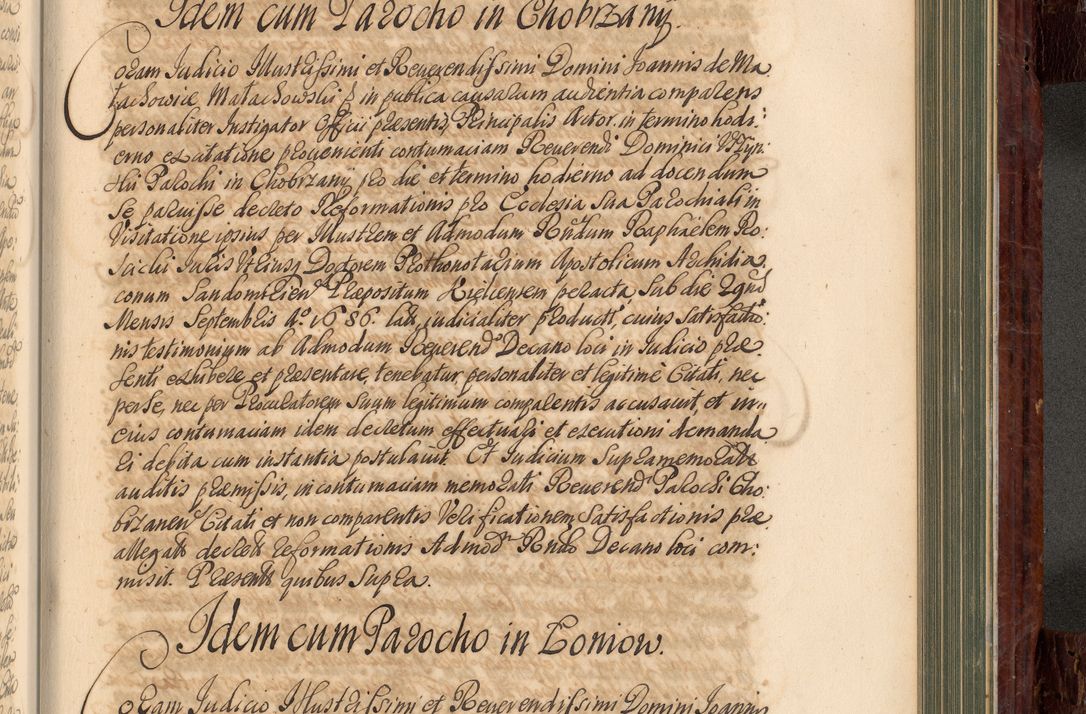 Idem cum Parocho in Chobrzany.
Coram Judicio Illustrissimi et Reverendissimi Domini Joannis de Ma
łachowice Małachowski &c in publica causarum audientia comparens
personaliter Instigator Officii præsentis, Principalis Actor. in termino hodi:
erno ex citatione provenienti contumaciam Reverendi Dominici
Parochi in Chobrzany pro die et termino hodierno ad docendum
Se paruisse decreto Reformationis pro Ecclesia Sua Parochiali in
Visitatione ipsius per Illustrem et Admodum Rndum Raphaelem
Juris Utriusq Doctorem Prothonotarium Apostolicum Archidia
conum Sandomirien Præpositum Kielcensem peracta Sub die 29na
Mensis Septembris Ao 1686. lati, judicialiter producti, cuius Satisfactio:
nis testimonium ab Admodum Reverendo Decano loci in Judicio præ
senti exhibere et præsentare, tenebatur, personaliter et legitimè Citati, nec
per se, nec per Procuratorem Suum legitimum comparentis accusavit, et in
eius contumaciam idem decretum effectuari et executioni demanda
ri debita cum instantia postulavit. Et Judicium Supramemoratt
auditis præmissis, in contumaciam memorati Reverendi Parochi Cho:
brzanen Citati et non comparentis Verificationem Satisfactionis præ
allegatt decreti reformationis Admod Rndo Decano loci com:
misit. Præsentt quibus Supra.
Idem cum Parocho in Łoniow.
Coram Judicio Illustrissimi et Reverendissimi Domini Joannis